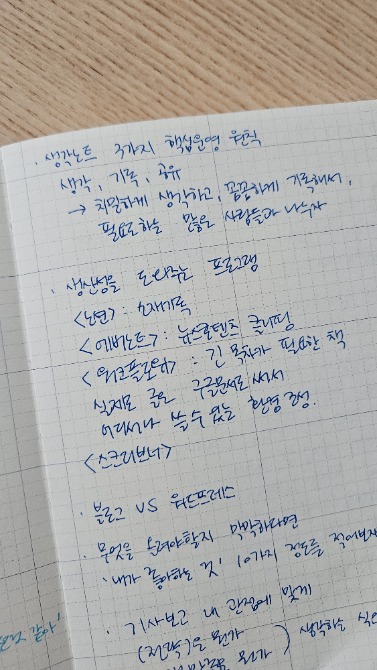 · 생각노트 3가지 핵심운영 원칙
생각, 기록, 공유
→ 치밀하게 생각하고, 꼼꼼하게 기록해서,
필요로하는 많은 사람들과 나누자
· 생산성을 도와주는 프로그램
<노션> : 소재기록
<에버노트> : 뉴스콘텐츠 클리핑
<워크플로위> : 긴 목차가 필요한 책
실제로 글은 구글문서로 써서
어디서나 쓸 수 있는 환경 조성.
<스크리브너>
· 블로그 VS 워드프레스
· 무엇을 올려야할지 막막하다면
'내가 좋아하는 것' 10가지 정도를 적어보자
· 기사보고 내 관점에 맞게
(전략)은 뭔가
생각하는